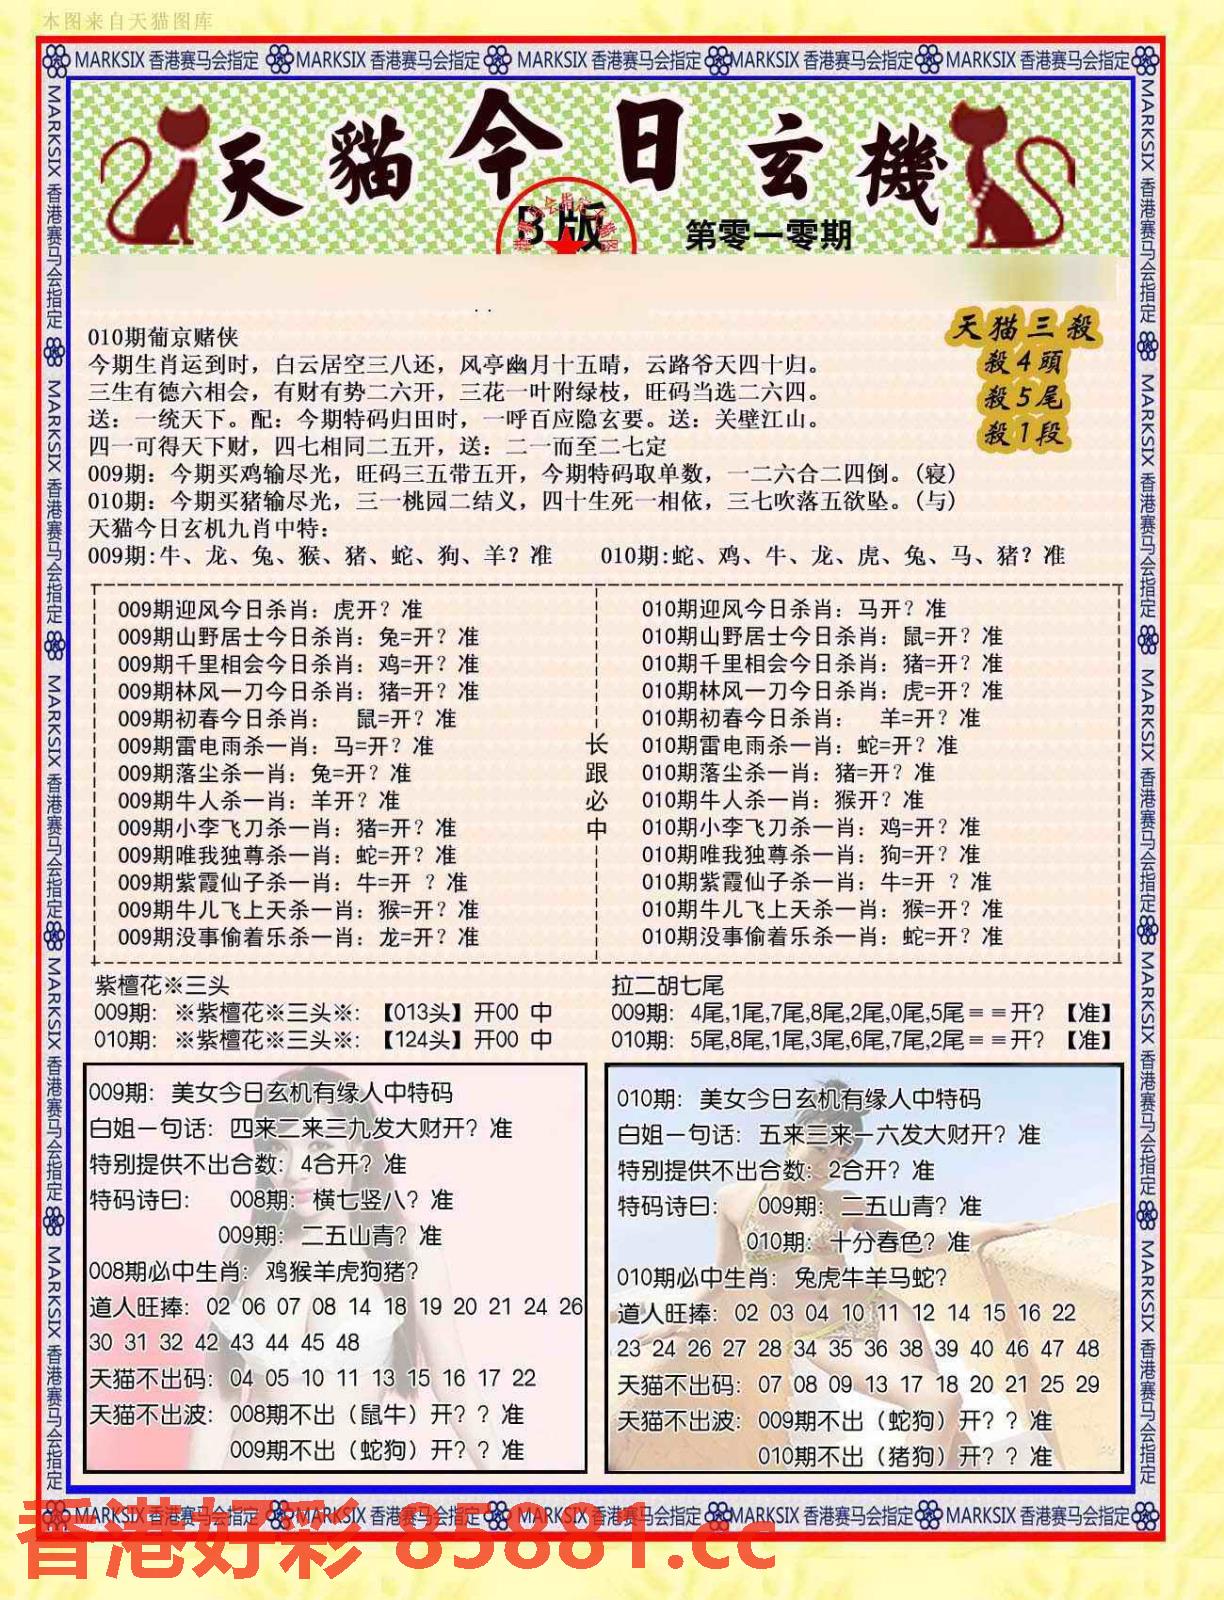 本图来自天猫图库
MARKSIX 香港赛马会指定 MARKSIX 香港赛马会指定 MARKSIX 香港赛马会指定 MARKSIX 香港赛马会指定 MARKSIX 香港赛马会指定
MARKSIX 香港赛马会指定 MARKSIX 香港赛马会指定 MARKSIX 香港赛马会指定 MARKSIX 香港赛马会指定 MARKSIX 香港赛马会指定
MARKSIX 香港赛马会指定 MARKSIX 香港赛马会指定 MARKSIX 香港赛马会指定 MARKSIX 香港赛马会指定 MARKSIX 香港赛马会指定
天貓今日玄機
B版
第零一零期
天猫三殺
殺4頭
殺5尾
殺1段
010期葡京赌侠
今期生肖运到时，白云居空三八还，风亭幽月十五晴，云路爷天四十归。
三生有德六相会，有财有势二六开，三花一叶附绿枝，旺码当选二六四。
送：一统天下。配：今期特码归田时，一呼百应隐玄要。送：关壁江山。
四一可得天下财，四七相同二五开，送：二一而至二七定
009期：今期买鸡输尽光，旺码三五带五开，今期特码取单数，一二六合二四倒。(寝)
010期：今期买猪输尽光，三一桃园二结义，四十生死一相依，三七吹落五欲坠。(与)
天猫今日玄机九肖中特：
009期:牛、龙、兔、猴、猪、蛇、狗、羊？准 010期:蛇、鸡、牛、龙、虎、兔、马、猪？准
009期迎风今日杀肖：虎开？准
009期山野居士今日杀肖：兔=开？准
009期千里相会今日杀肖：鸡=开？准
009期林风一刀今日杀肖：猪=开？准
009期初春今日杀肖： 鼠=开？准
009期雷电雨杀一肖：马=开？准
009期落尘杀一肖：兔=开？准
009期牛人杀一肖：羊开？准
009期小李飞刀杀一肖：猪=开？准
009期唯我独尊杀一肖：蛇=开？准
009期紫霞仙子杀一肖：牛=开 ？准
009期牛儿飞上天杀一肖：猴=开？准
009期没事偷着乐杀一肖：龙=开？准
长跟必中
010期迎风今日杀肖：马开？准
010期山野居士今日杀肖：鼠=开？准
010期千里相会今日杀肖：猪=开？准
010期林风一刀今日杀肖：虎=开？准
010期初春今日杀肖： 羊=开？准
010期雷电雨杀一肖：蛇=开？准
010期落尘杀一肖：猪=开？准
010期牛人杀一肖：猴开？准
010期小李飞刀杀一肖：鸡=开？准
010期唯我独尊杀一肖：狗=开？准
010期紫霞仙子杀一肖：牛=开 ？准
010期牛儿飞上天杀一肖：猴=开？准
010期没事偷着乐杀一肖：蛇=开？准
紫檀花※三头
009期：※紫檀花※三头※：【013头】开00 中
010期：※紫檀花※三头※：【124头】开00 中
拉二胡七尾
009期：4尾,1尾,7尾,8尾,2尾,0尾,5尾＝＝开？【准】
010期：5尾,8尾,1尾,3尾,6尾,7尾,2尾＝＝开？【准】
009期：美女今日玄机有缘人中特码
白姐一句话：四来二来三九发大财开？准
特别提供不出合数：4合开？准
特码诗曰： 008期：横七竖八？准
009期：二五山青？准
008期必中生肖：鸡猴羊虎狗猪？
道人旺捧：02 06 07 08 14 18 19 20 21 24 26
30 31 32 42 43 44 45 48
天猫不出码：04 05 10 11 13 15 16 17 22
天猫不出波：008期不出（鼠牛）开？？准
009期不出（蛇狗）开？？准
010期：美女今日玄机有缘人中特码
白姐一句话：五来三来一六发大财开？准
特别提供不出合数：2合开？准
特码诗曰： 009期：二五山青？准
010期：十分春色？准
010期必中生肖：兔虎牛羊马蛇？
道人旺捧：02 03 04 10 11 12 14 15 16 22
23 24 26 27 28 34 35 36 38 39 40 46 47 48
天猫不出码：07 08 09 13 17 18 20 21 25 29
天猫不出波：009期不出（蛇狗）开？？准
010期不出（猪狗）开？？准
MARKSIX 香港赛马会指定 MARKSIX 香港赛马会指定 MARKSIX 香港赛马会指定 MARKSIX 香港赛马会指定 MARKSIX 香港赛马会指定
香港好彩 85881.cc